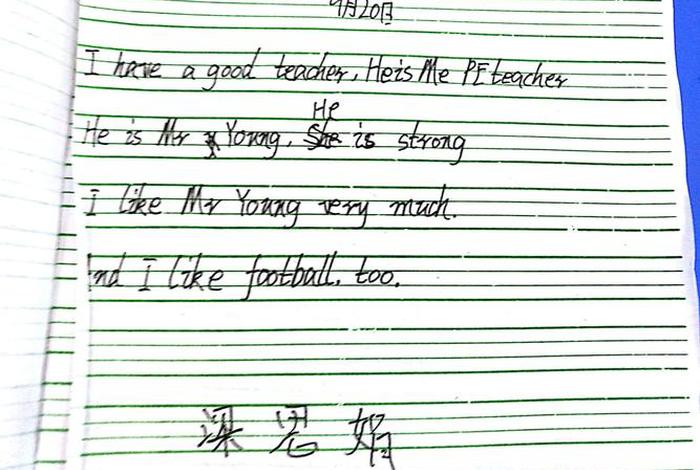 9月20日
I have a good teacher. He is Me PE teacher
He
He is Mr Young. She is strong
I like Mr Young very much.
And I like football. too.